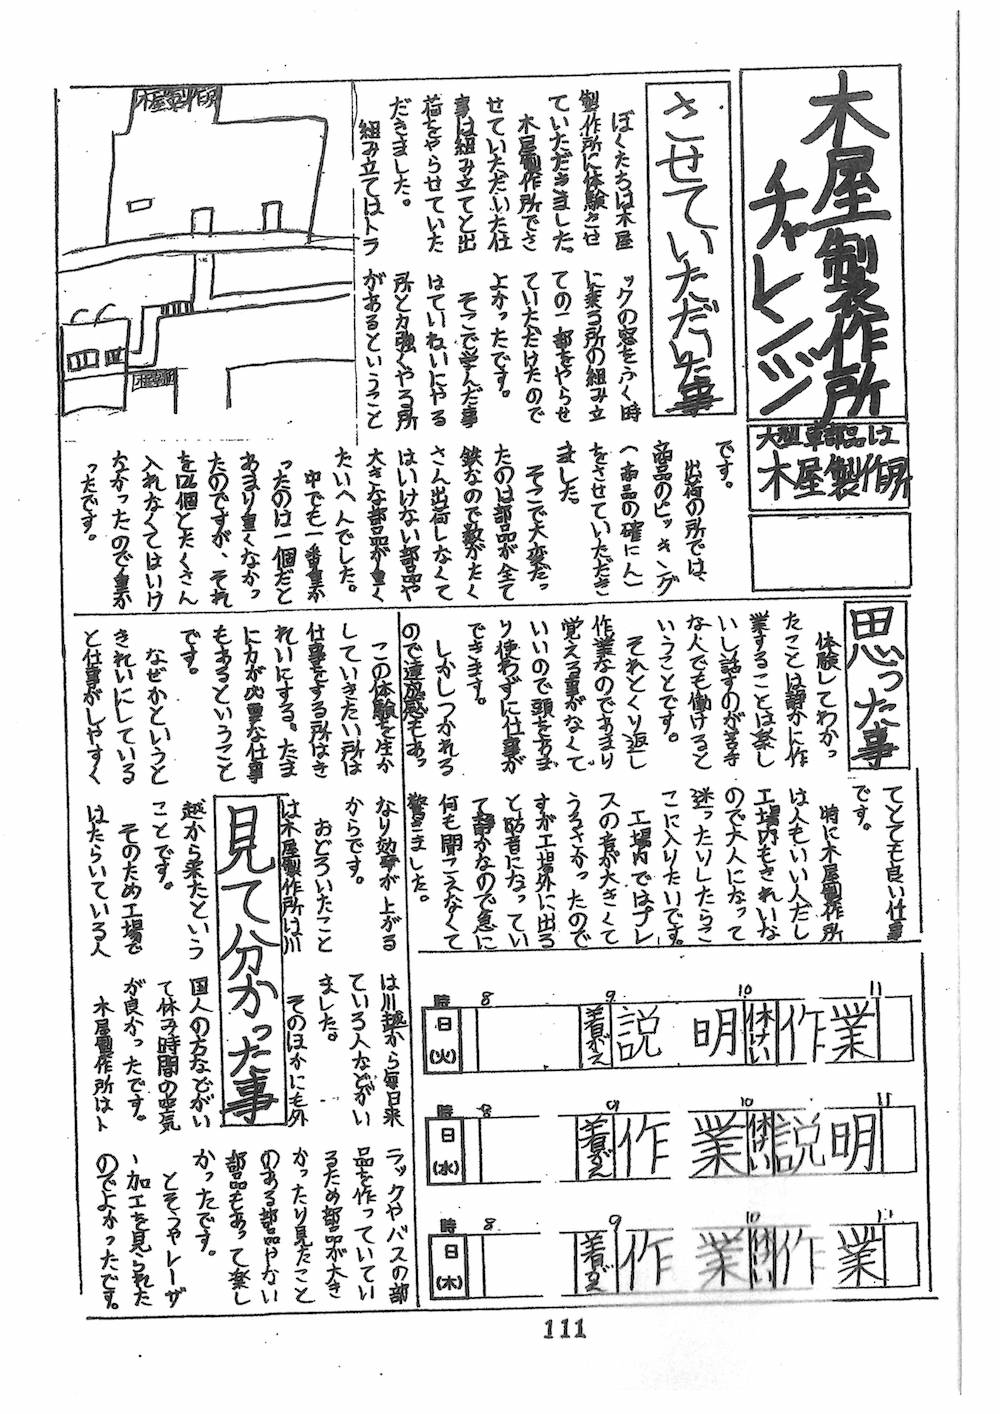 木屋製作所
チャレンジ
大型車部品は
木屋製作所
させていただいた事
ぼくたちは木屋
製作所に体験させ
ていただきました。
木屋製作所でさ
せていただいた仕
事は組み立てと出
荷をやらせていた
だきました。
組み立てはトラ
ックの窓をふく時
に乗る所の組み立
ての一部をやらせ
ていただけたので
よかったです。
そこで学んだ事
はていねいにやる
所と力強くやる所
があるということ
です。
出荷の所では、
商品のピッキング
(商品の確にん)
をさせていただき
ました。
そこで大変だっ
たのは部品が全て
鉄なので数がたく
さん出荷しなくて
はいけない部品や
大きな部品が重く
たいへんでした。
中でも一番重か
ったのは一個だと
あまり重くなかっ
たのですが、それ
を12個とたくさん
入れなくてはいけ
なかったので重か
ったです。
木屋製作所
木屋製
思った事
体験してわかっ
たことは静かに作
業することは楽し
いし話すのが苦手
な人でも働けると
いうことです。
それとくり返し
作業なのであまり
覚える事がなくて
いいので頭をあま
り使わずに仕事が
できます。
しかしつかれる
ので達成感もあっ
てとても良い仕事
です。
特に木屋製作所
は人もいい人だし
工場内もきれいな
ので大人になって
迷ったりしたらこ
こに入りたいです。
工場内ではプレ
スの音が大きくて
うるさかったので
すが工場外に出る
と防音になってい
て静かなので急に
何も聞こえなくて
驚きました。
この体験を生か
していきたい所は
仕事をする所はき
れいにする。たま
に力が必要な仕事
もあるということ
です。
なぜかというと
きれいにしている
と仕事がしやすく
なり効率が上がる
からです。
見て分かった事
おどろいたこと
は木屋製作所は川
越から来たという
ことです。
そのため工場で
はたらいている人
は川越から毎日来
ている人などがい
ました。
そのほかにも外
国人の方などがい
て休み時間の空気
が良かったです。
木屋製作所はト
ラックやバスの部
品を作っていてい
るため部品が大き
かったり見たこと
のある部品やない
部品もあって楽し
かったです。
とそうやレーザ
ー加工を見られた
のでよかったです。
時 8 9 10 11
日(火) 着がえ 説明 休けい 作業
時 8 9 10 11
日(水) 着がえ 作業 休けい 説明
時 8 9 10 11
日(木) 着がえ 作業 休けい 作業
111